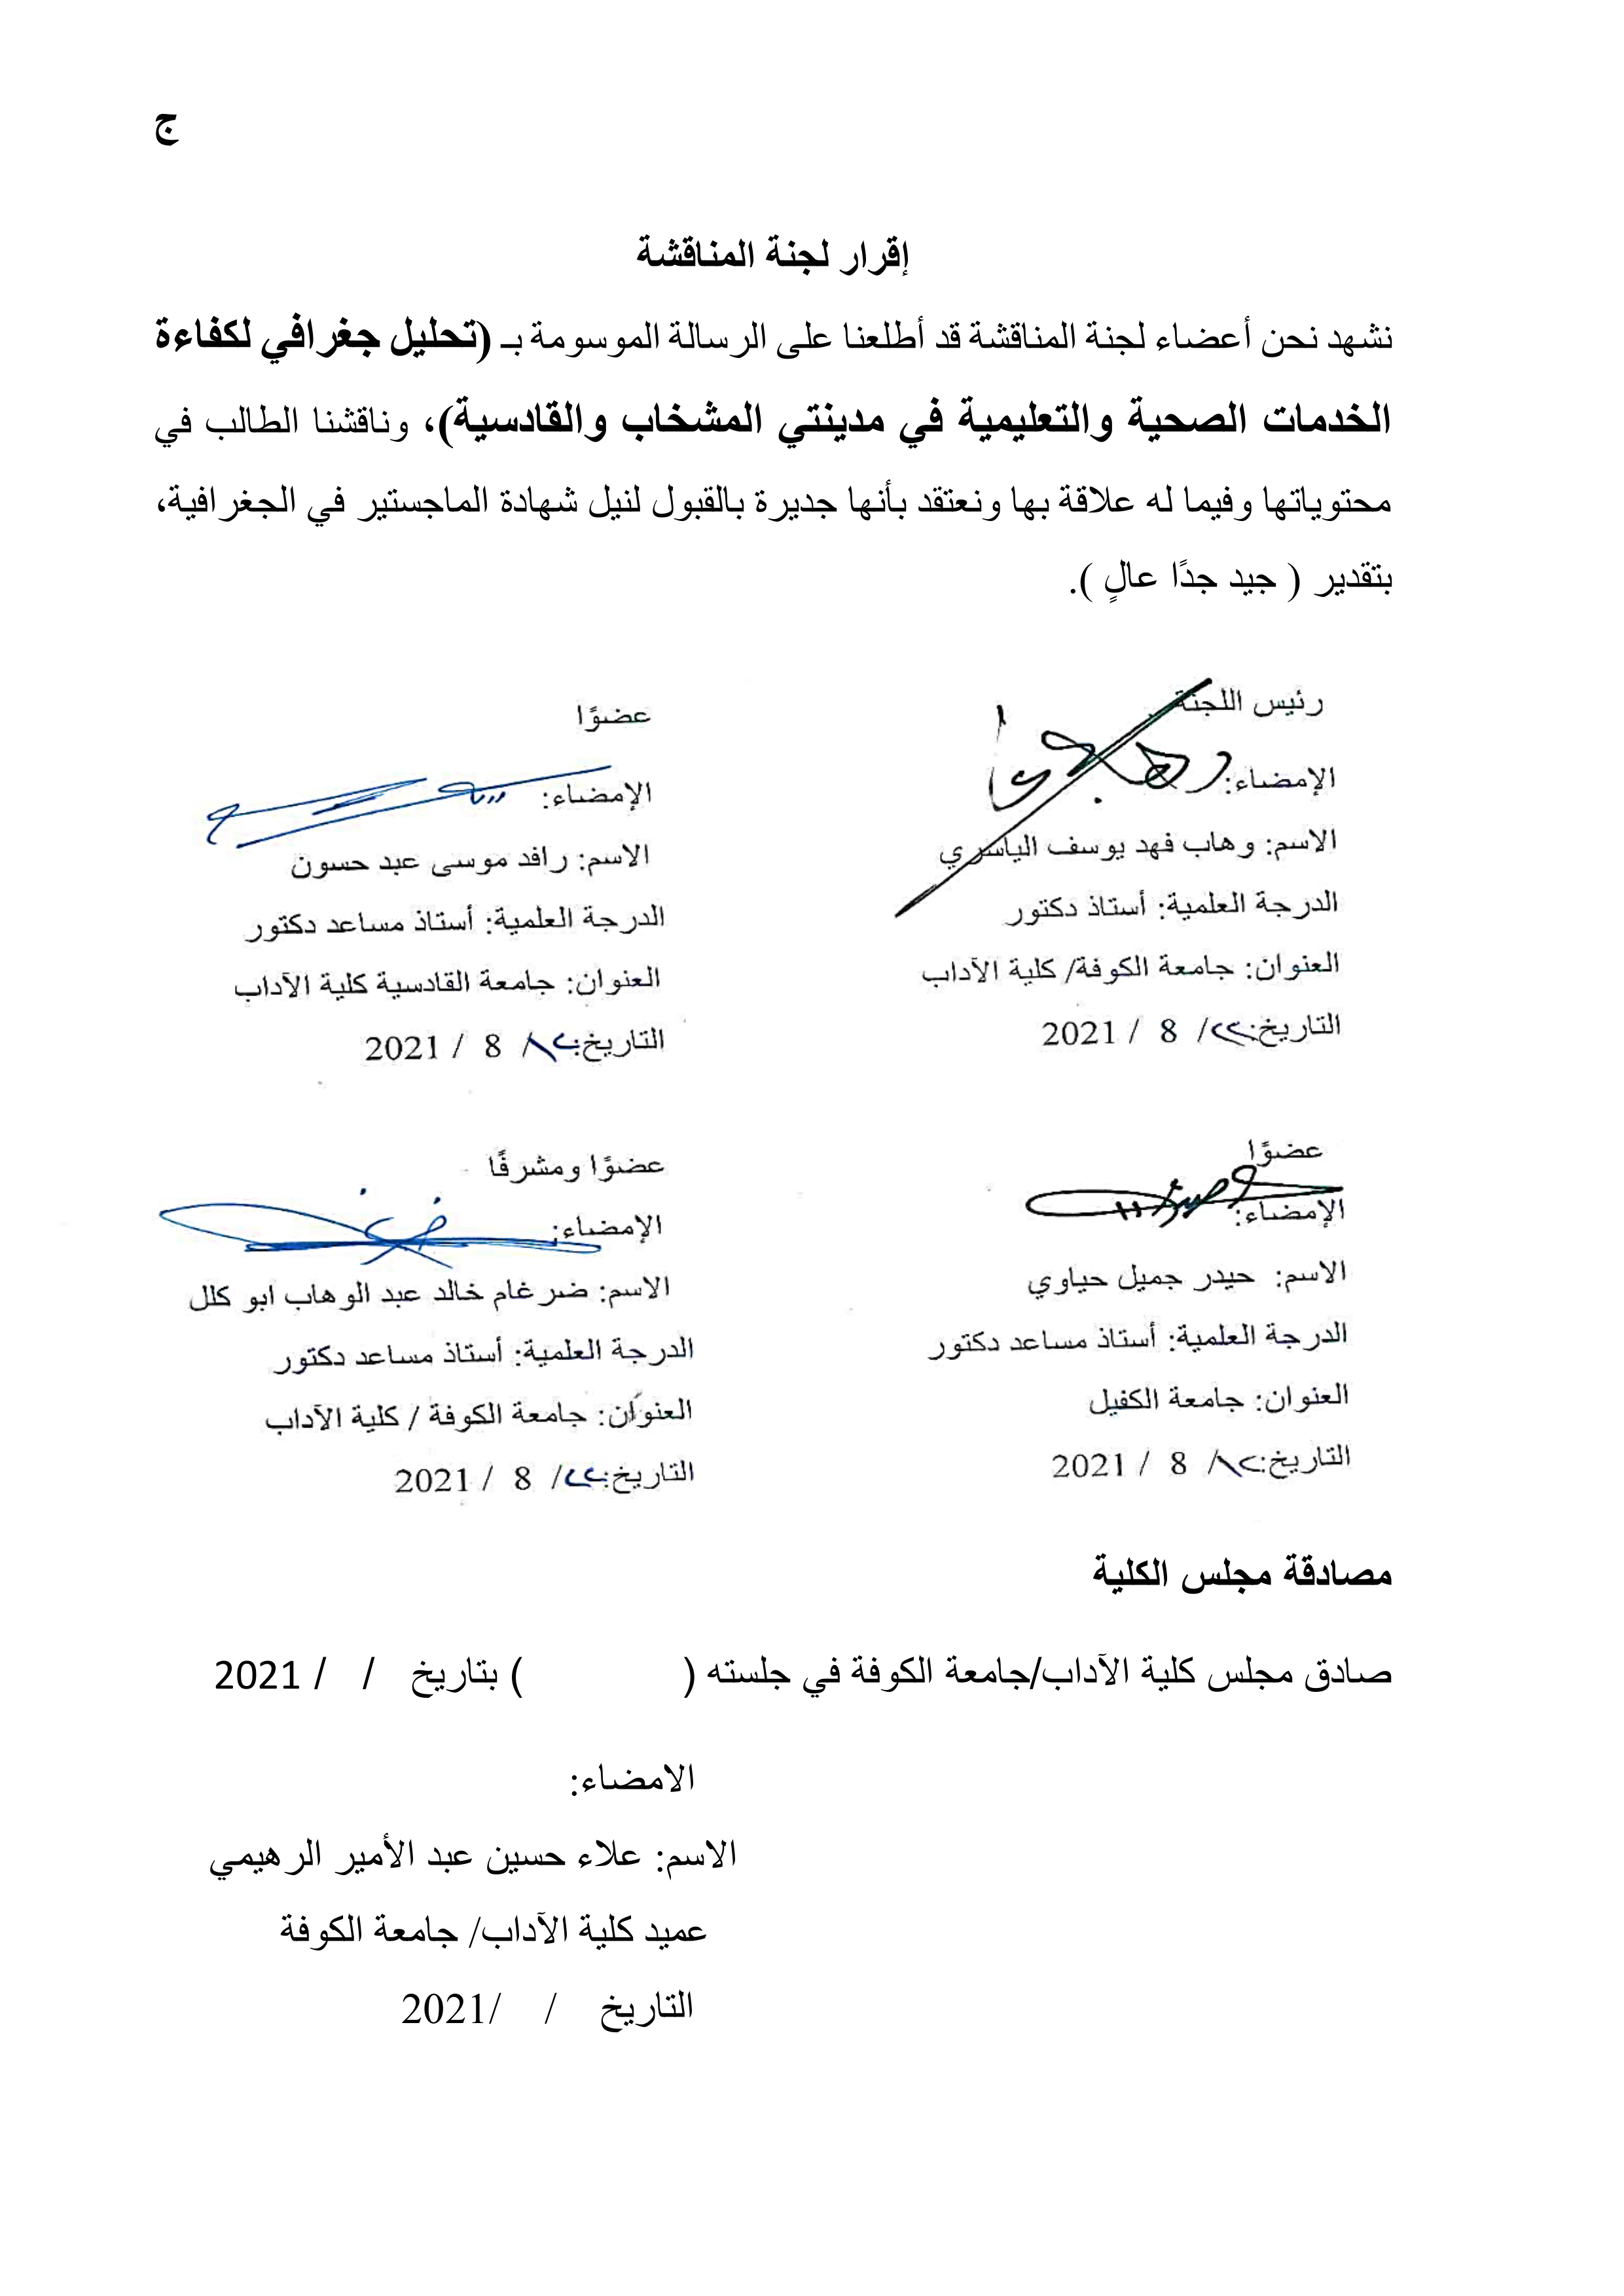 ج
إقرار لجنة المناقشة
نشهد نحن أعضاء لجنة المناقشة قد أطلعنا على الرسالة الموسومة بـ (تحليل جغرافي لكفاءة
الخدمات الصحية والتعليمية في مدينتي المشخاب والقادسية)، وناقشنا الطالب في
محتوياتها وفيما له علاقة بها ونعتقد بأنها جديرة بالقبول لنيل شهادة الماجستير في الجغرافية،
بتقدير ( جيد جدًا عالٍ ).
رئيس اللجنة
الإمضاء:
الاسم: وهاب فهد يوسف الياسري
الدرجة العلمية: أستاذ دكتور
العنوان: جامعة الكوفة/ كلية الآداب
التاريخ: / 8 / 2021
عضوًا
الإمضاء:
الاسم: رافد موسى عبد حسون
الدرجة العلمية: أستاذ مساعد دكتور
العنوان: جامعة القادسية كلية الآداب
التاريخ: / 8 / 2021
عضوًا
الإمضاء:
الاسم: حيدر جميل حياوي
الدرجة العلمية: أستاذ مساعد دكتور
العنوان: جامعة الكفيل
التاريخ: / 8 / 2021
عضوًا ومشرفًا
الإمضاء:
الاسم: ضرغام خالد عبد الوهاب ابو كلل
الدرجة العلمية: أستاذ مساعد دكتور
العنوان: جامعة الكوفة / كلية الآداب
التاريخ: / 8 / 2021
مصادقة مجلس الكلية
صادق مجلس كلية الآداب/جامعة الكوفة في جلسته ( ) بتاريخ / / 2021
الامضاء:
الاسم: علاء حسين عبد الأمير الرهيمي
عميد كلية الآداب/ جامعة الكوفة
التاريخ / /2021